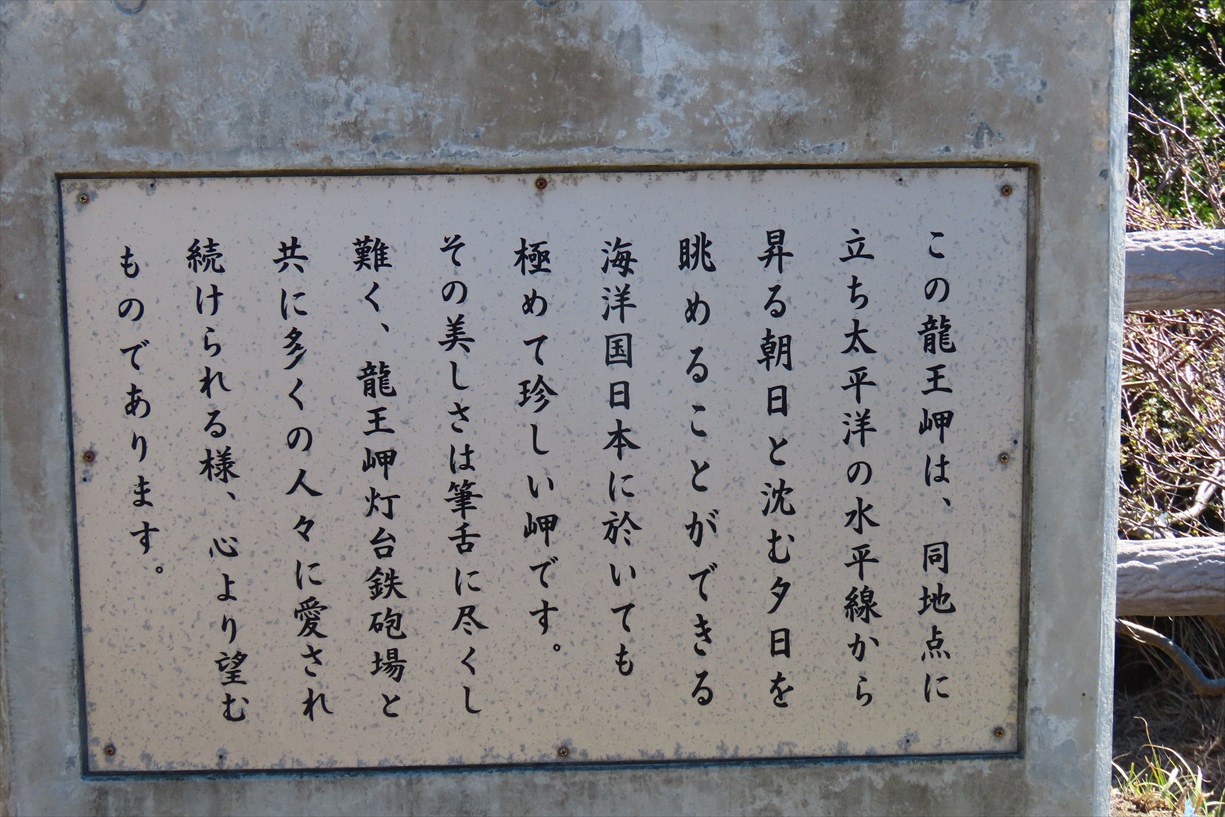 この龍王岬は、同地点に
立ち太平洋の水平線から
昇る朝日と沈む夕日を
眺めることができる
海洋国日本に於いても
極めて珍しい岬です。
その美しさは筆舌に尽くし
難く、龍王岬灯台鉄砲場と
共に多くの人々に愛され
続けられる様、心より望む
ものであります。